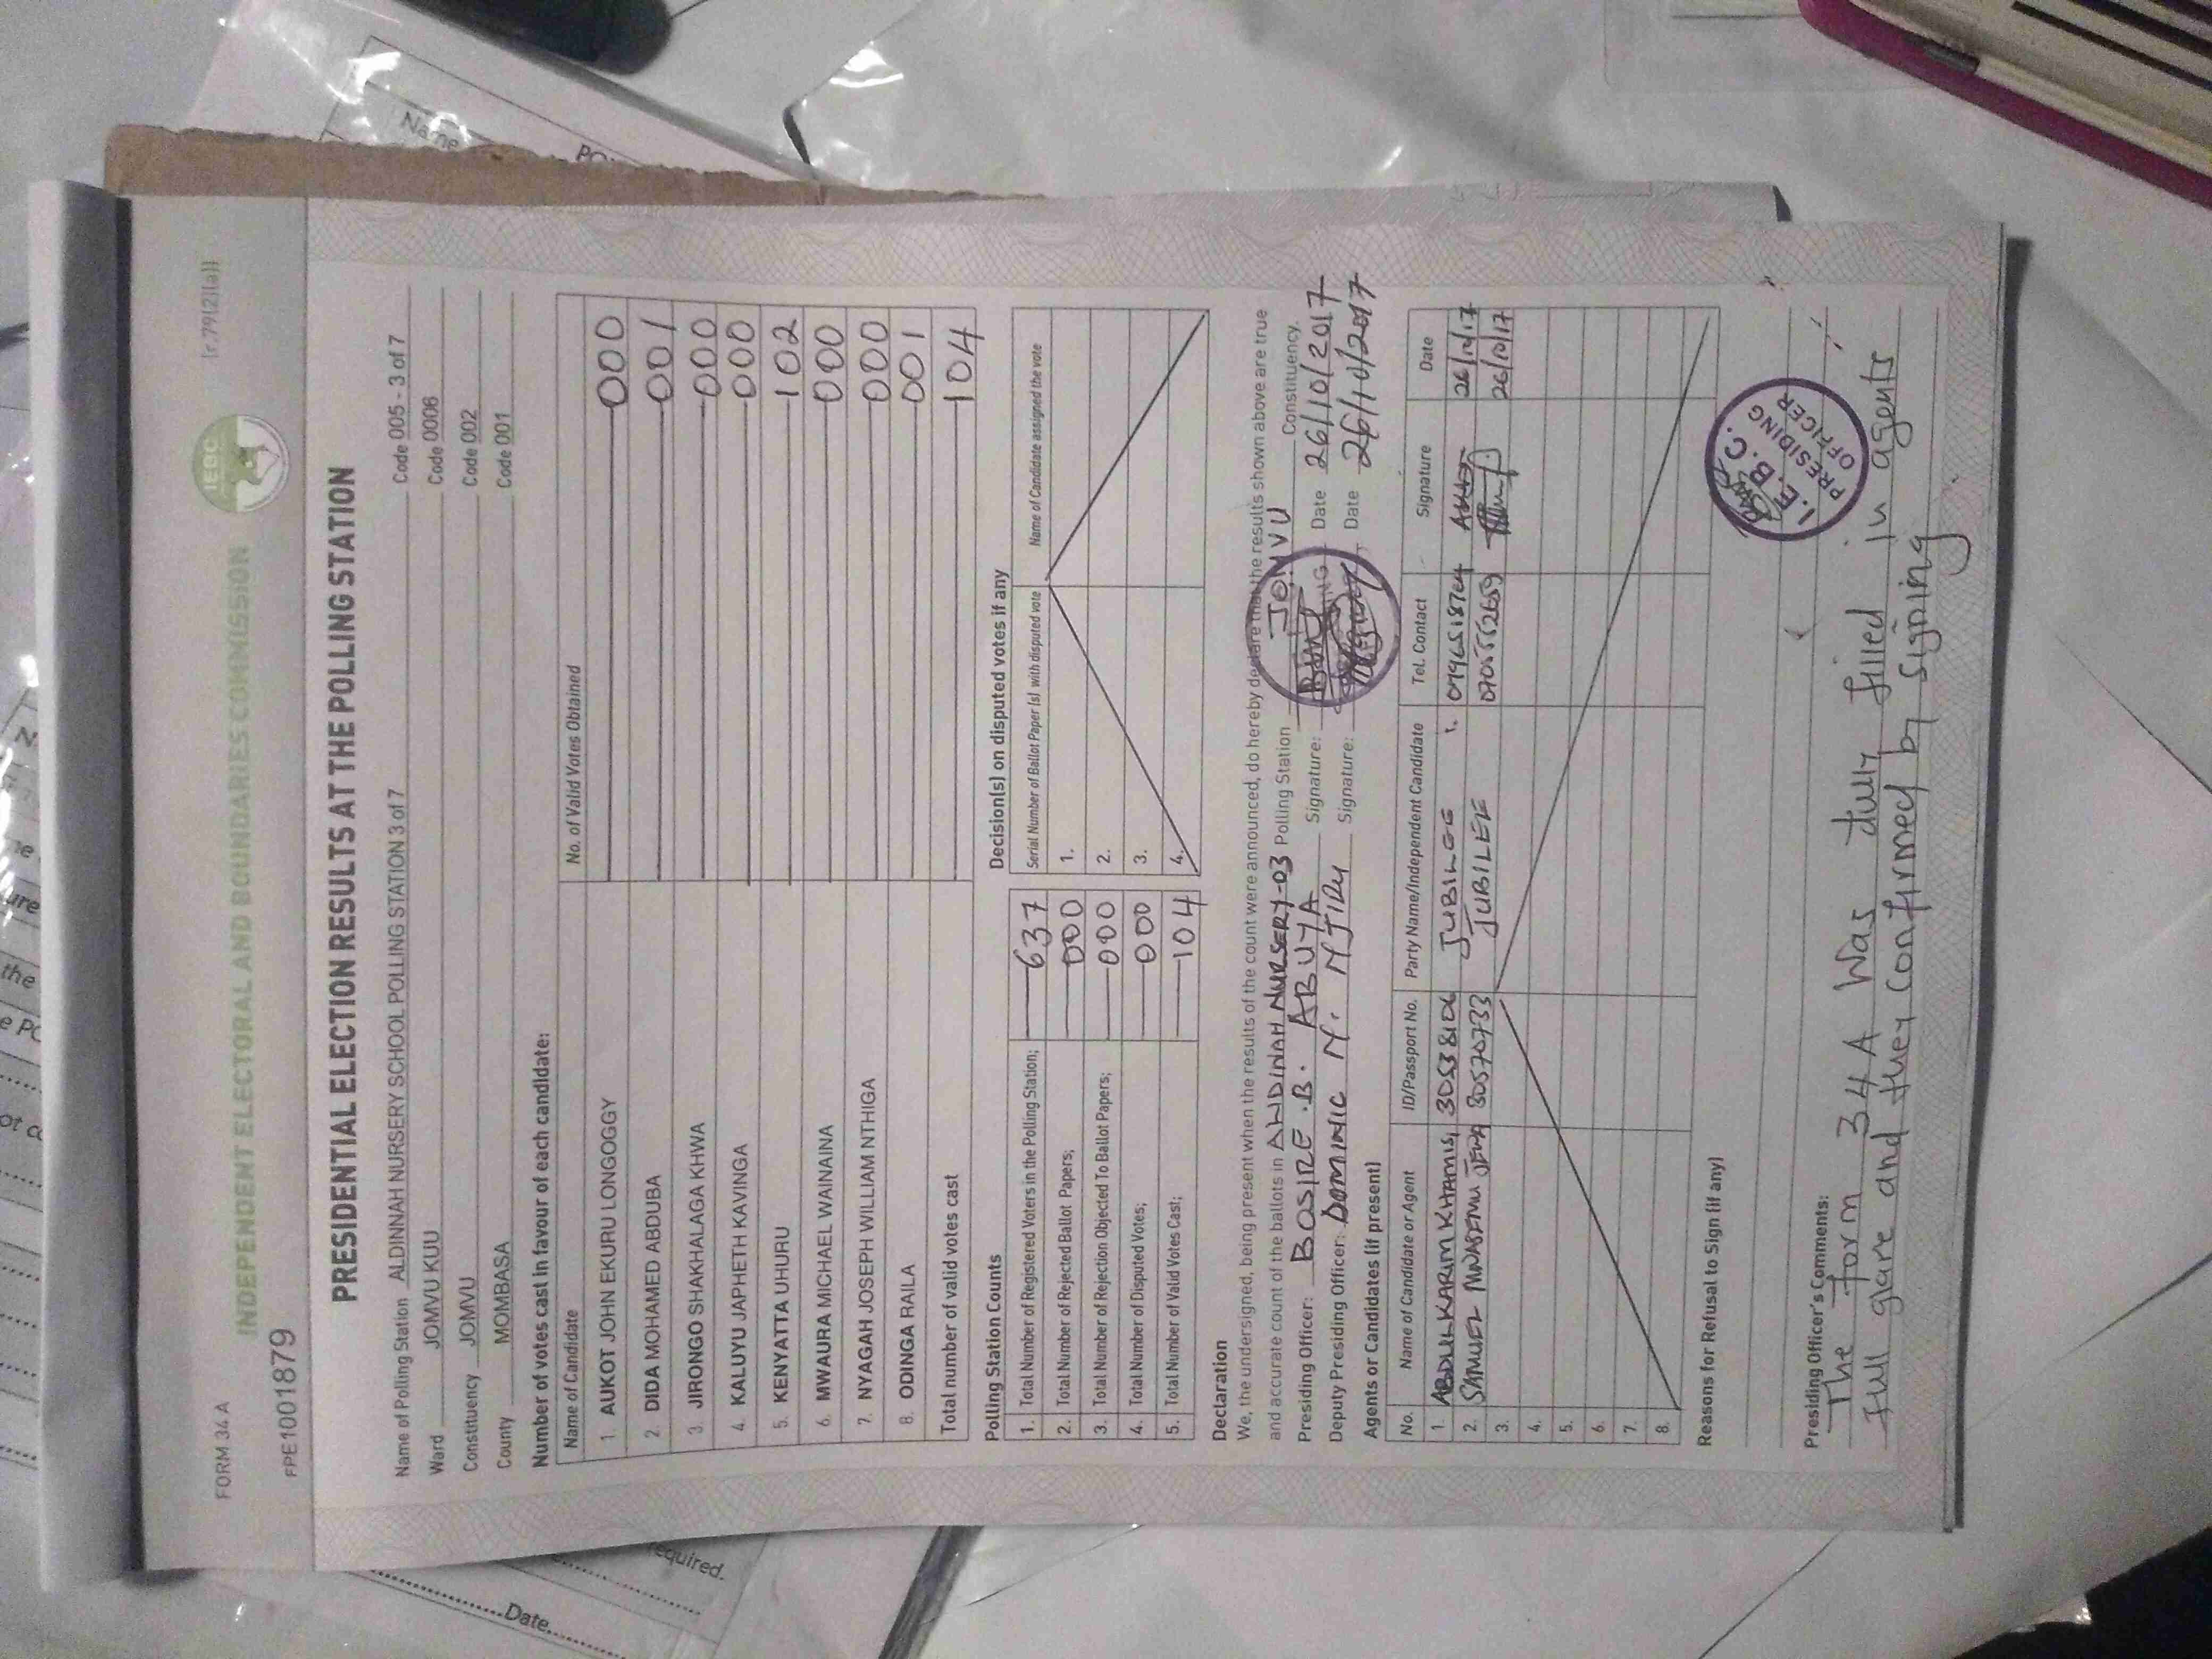 FORM 34 A
[r.79(2)(a)]
INDEPENDENT ELECTORAL AND BOUNDARIES COMMISSION
IEBC
FPE1001879
PRESIDENTIAL ELECTION RESULTS AT THE POLLING STATION
Name of Polling Station ALDINNAH NURSERY SCHOOL POLLING STATION 3 of 7 Code 005 - 3 of 7
Ward JOMVU KUU Code 0006
Constituency JOMVU Code 002
County MOMBASA Code 001
Number of votes cast in favour of each candidate:
Name of Candidate No. of Valid Votes Obtained
1. AUKOT JOHN EKURU LONGOGGY 000
2. DIDA MOHAMED ABDUBA 001
3. JIRONGO SHAKHALAGA KHWA 000
4. KALUYU JAPHETH KAVINGA 000
5. KENYATTA UHURU 102
6. MWAURA MICHAEL WAINAINA 000
7. NYAGAH JOSEPH WILLIAM NTHIGA 000
8. ODINGA RAILA 001
Total number of valid votes cast 104
Polling Station Counts
1. Total Number of Registered Voters in the Polling Station; 637
2. Total Number of Rejected Ballot Papers; 000
3. Total Number of Rejection Objected To Ballot Papers; 000
4. Total Number of Disputed Votes; 000
5. Total Number of Valid Votes Cast; 104
Decision(s) on disputed votes if any
Serial Number of Ballot Paper (s) with disputed vote Name of Candidate assigned the vote
1.
2.
3.
4.
Declaration
We, the undersigned, being present when the results of the count were announced, do hereby declare that the results shown above are true
and accurate count of the ballots in ALNDINAH NURSERY-03 Polling Station JOMVU Constituency.
Presiding Officer: BOSIRE .B. ABUYA Signature: Date 26/10/2017
Deputy Presiding Officer: DOMINIC N. NJIRU Signature: Date 26/10/2017
Agents or Candidates (if present)
No. Name of Candidate or Agent ID/Passport No. Party Name/Independent Candidate Tel. Contact Signature Date
1. ABDULKARIM KHAMIS 30538106 JUBILEE 26/10/17
2. SAMUEL 30570733 JUBILEE 26/10/17
3.
4.
5.
6.
7.
8.
Reasons for Refusal to Sign (if any)
I.E.B.C.
PRESIDING
OFFICER
Presiding Officer's Comments:
The form 34A Was dully filled in agents
full glare and they confirmed by signing
Name
Date
required.